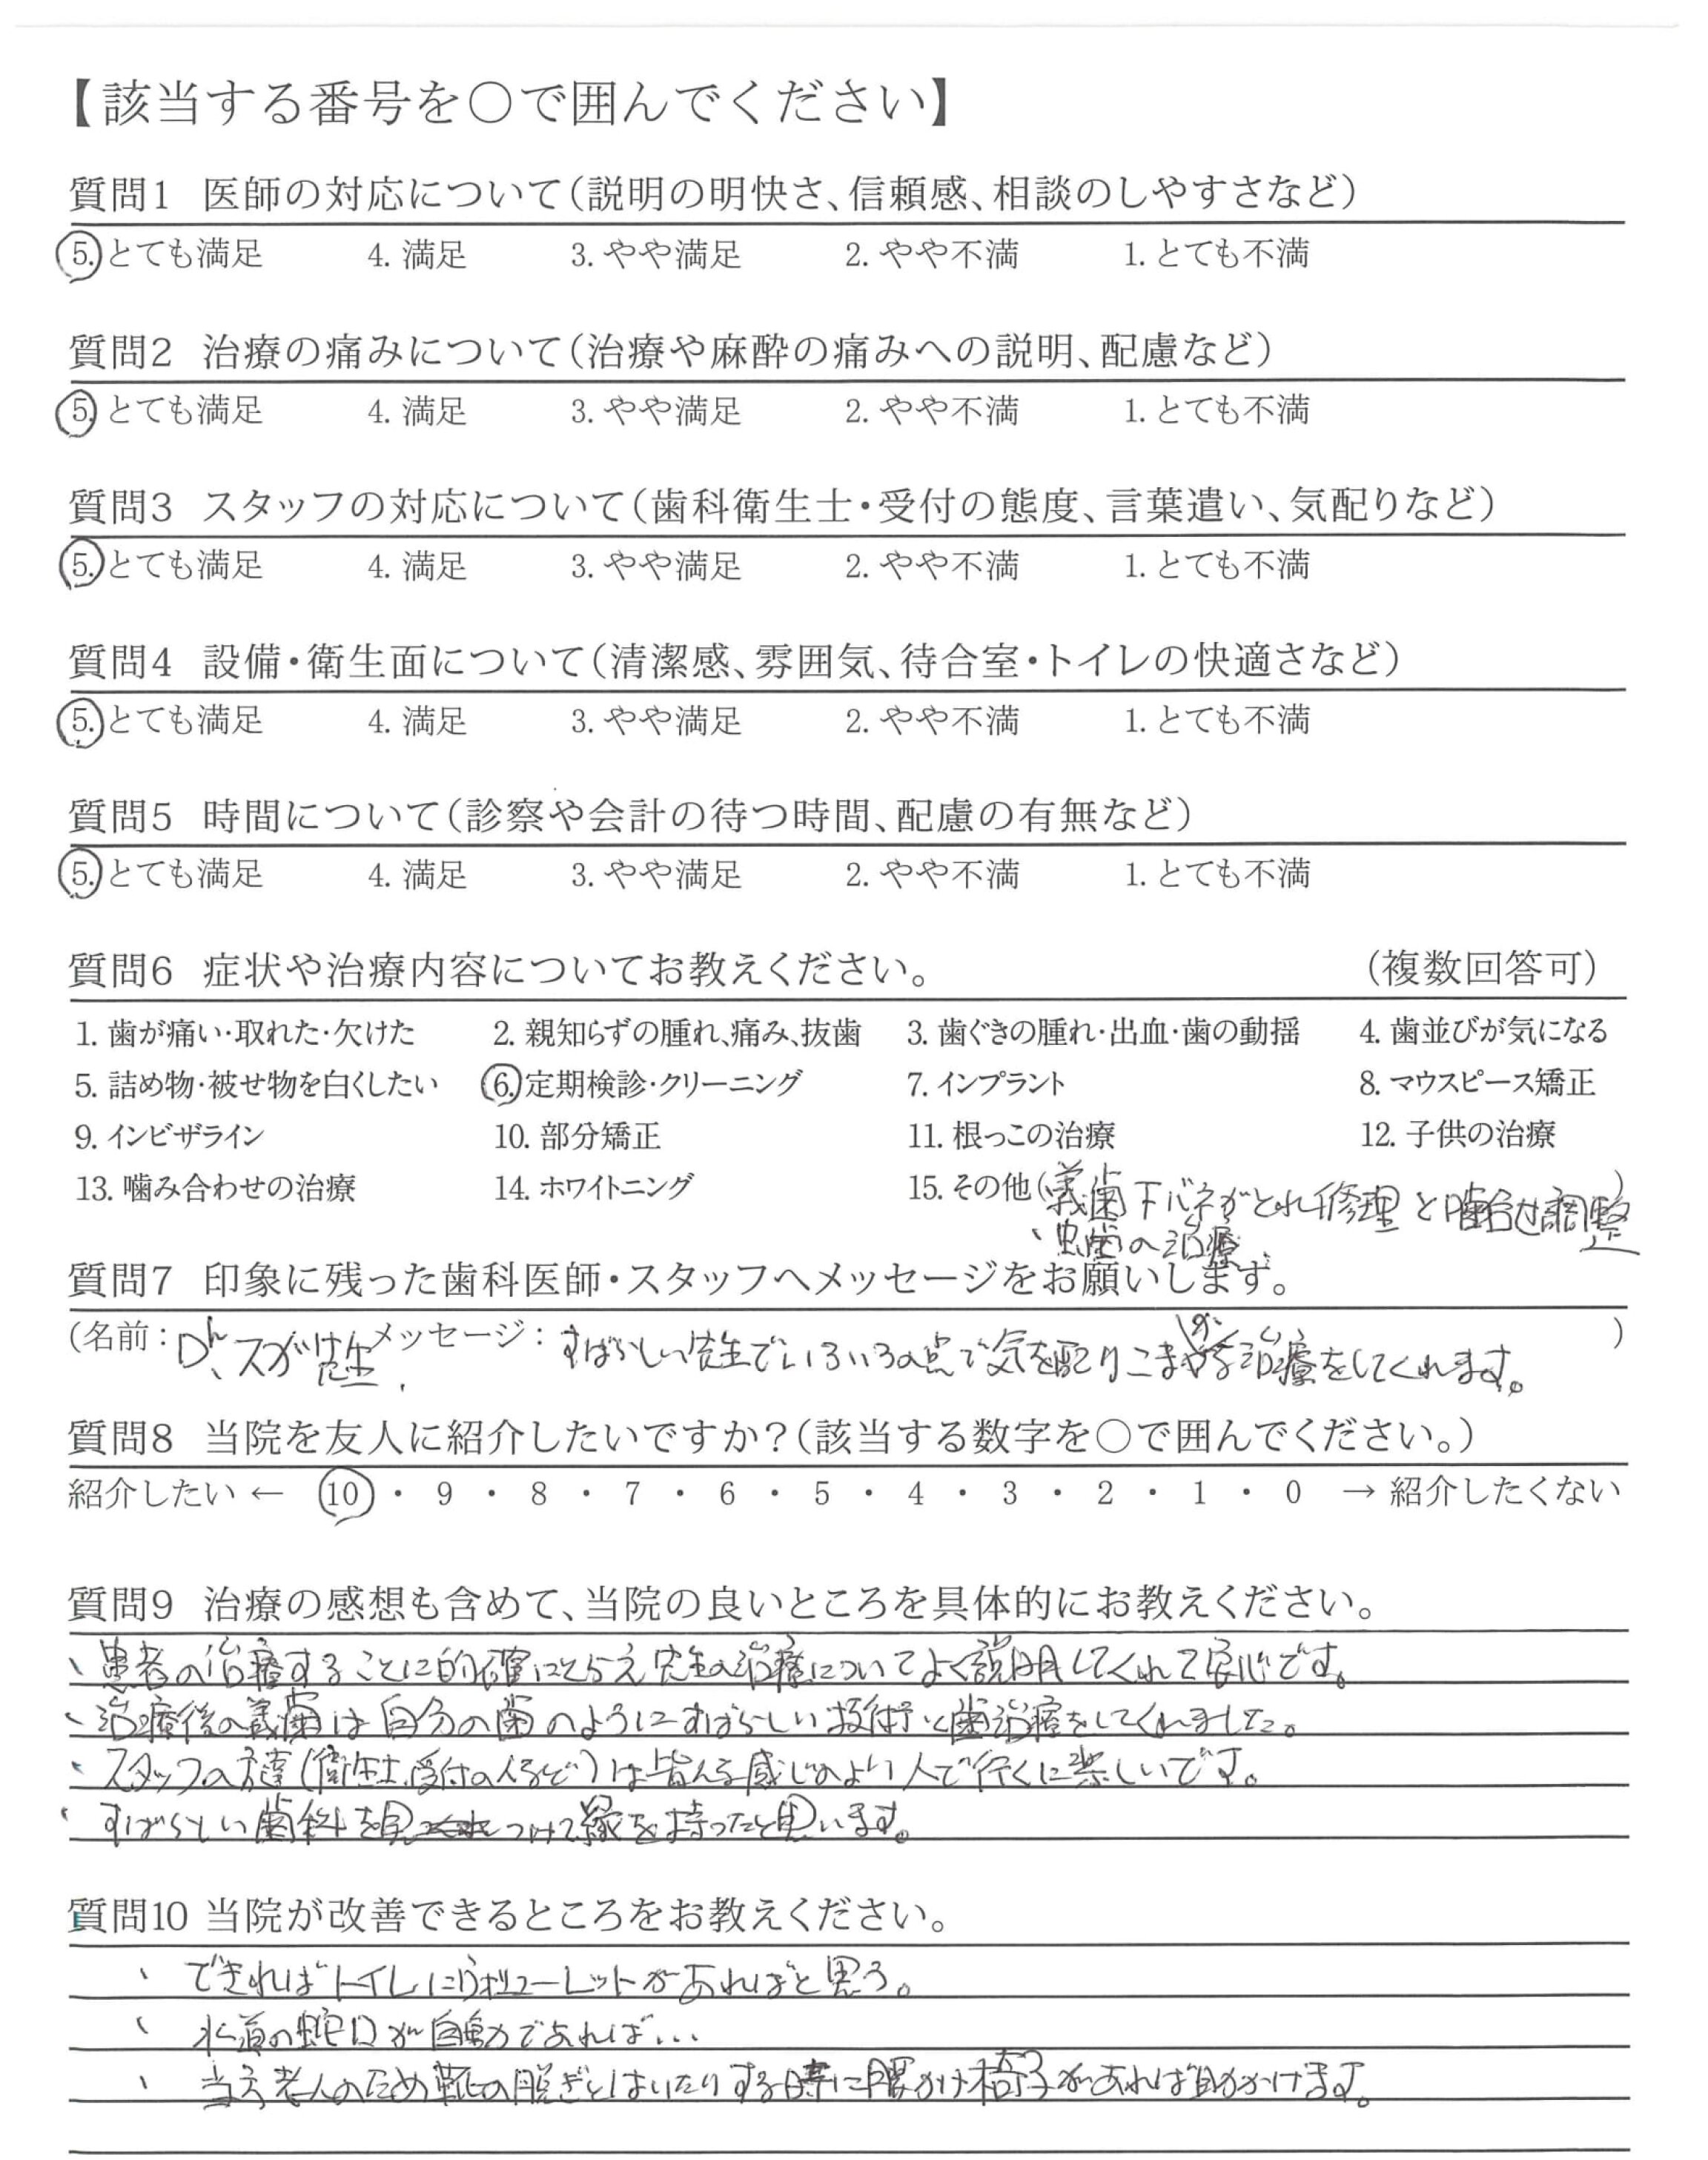 【該当する番号を○で囲んでください】
質問1 医師の対応について(説明の明快さ、信頼感、相談のしやすさなど)
5. とても満足 4. 満足 3. やや満足 2. やや不満 1. とても不満
質問2 治療の痛みについて(治療や麻酔の痛みへの説明、配慮など)
5. とても満足 4. 満足 3. やや満足 2. やや不満 1. とても不満
質問3 スタッフの対応について(歯科衛生士・受付の態度、言葉遣い、気配りなど)
5. とても満足 4. 満足 3. やや満足 2. やや不満 1. とても不満
質問4 設備・衛生面について(清潔感、雰囲気、待合室・トイレの快適さなど)
5. とても満足 4. 満足 3. やや満足 2. やや不満 1. とても不満
質問5 時間について(診察や会計の待つ時間、配慮の有無など)
5. とても満足 4. 満足 3. やや満足 2. やや不満 1. とても不満
質問6 症状や治療内容についてお教えください。 (複数回答可)
1. 歯が痛い・取れた・欠けた 2. 親知らずの腫れ、痛み、抜歯 3. 歯ぐきの腫れ・出血・歯の動揺 4. 歯並びが気になる
5. 詰め物・被せ物を白くしたい 6. 定期検診・クリーニング 7. インプラント 8. マウスピース矯正
9. インビザライン 10. 部分矯正 11. 根っこの治療 12. 子供の治療
13. 噛み合わせの治療 14. ホワイトニング 15. その他(義歯下バネがとれ修理と噛合せ調整)
、虫歯の治療
質問7 印象に残った歯科医師・スタッフへメッセージをお願いします。
(名前: Dr、スガ先生. メッセージ: すばらしい先生でいろいろの点で気を配りこまかな治療をしてくれます。)
質問8 当院を友人に紹介したいですか?(該当する数字を○で囲んでください。)
紹介したい ← 10 ・ 9 ・ 8 ・ 7 ・ 6 ・ 5 ・ 4 ・ 3 ・ 2 ・ 1 ・ 0 → 紹介したくない
質問9 治療の感想も含めて、当院の良いところを具体的にお教えください。
、患者の治療することに的確にとらえ先生の治療についてよく説明してくれて安心です。
、治療後の義歯は自分の歯のようにすばらしい技術で歯治療をしてくれました。
、スタッフの方達(衛生士、受付の人など)は皆さん感じのよい人で行くに楽しいです。
、すばらしい歯科を見つけて縁を持ったと思います。
質問10 当院が改善できるところをお教えください。
、できればトイレにウォシューレットがあればと思う。
、水道の蛇口が自動であれば…
、当方老人のため靴の脱ぎとはいたりする時に腰かけ椅子があれば助かけます。